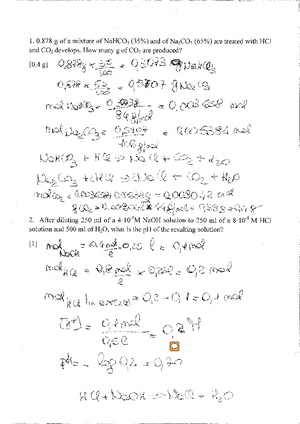 1. 0.878 g of a mixture of NaHCO3 (35%) and of Na2CO3 (65%) are treated with HCl
and CO2 develops. How many g of CO2 are produced?
[0.4 g] 0,878g x 35/100 = 0,3073 g NaHCO3
0,878 x 65/100 = 0,5707 g Na2CO3
mol NaHCO3 = 0,3073 / 84 g/mol = 0,003658 mol
mol Na2CO3 = 0,5707 / 106 g/mol = 0,005384 mol
NaHCO3 + HCl → NaCl + CO2 + H2O
Na2CO3 + 2HCl → NaCl + CO2 + H2O
mol CO2 =
2. After diluting 250 ml of a 4·10 M NaOH solution to 250 ml of a 8·10 M HCl
solution and 500 ml of H2O, what is the pH of the resulting solution?
[1] mol NaOH = 0,4 mol/ 0,25 l = 0,1 mol
mol HCl = 0,8 mol/ x 0,25 l = 0,2 mol
mol HCl in excess = 0,2 - 0,1 = 0,1 mol
[H+] = 0,1 mol / 0,5 l = 0,2 M
pH = - log 0,2 = 0,70
HCl + NaOH → NaCl + H2O